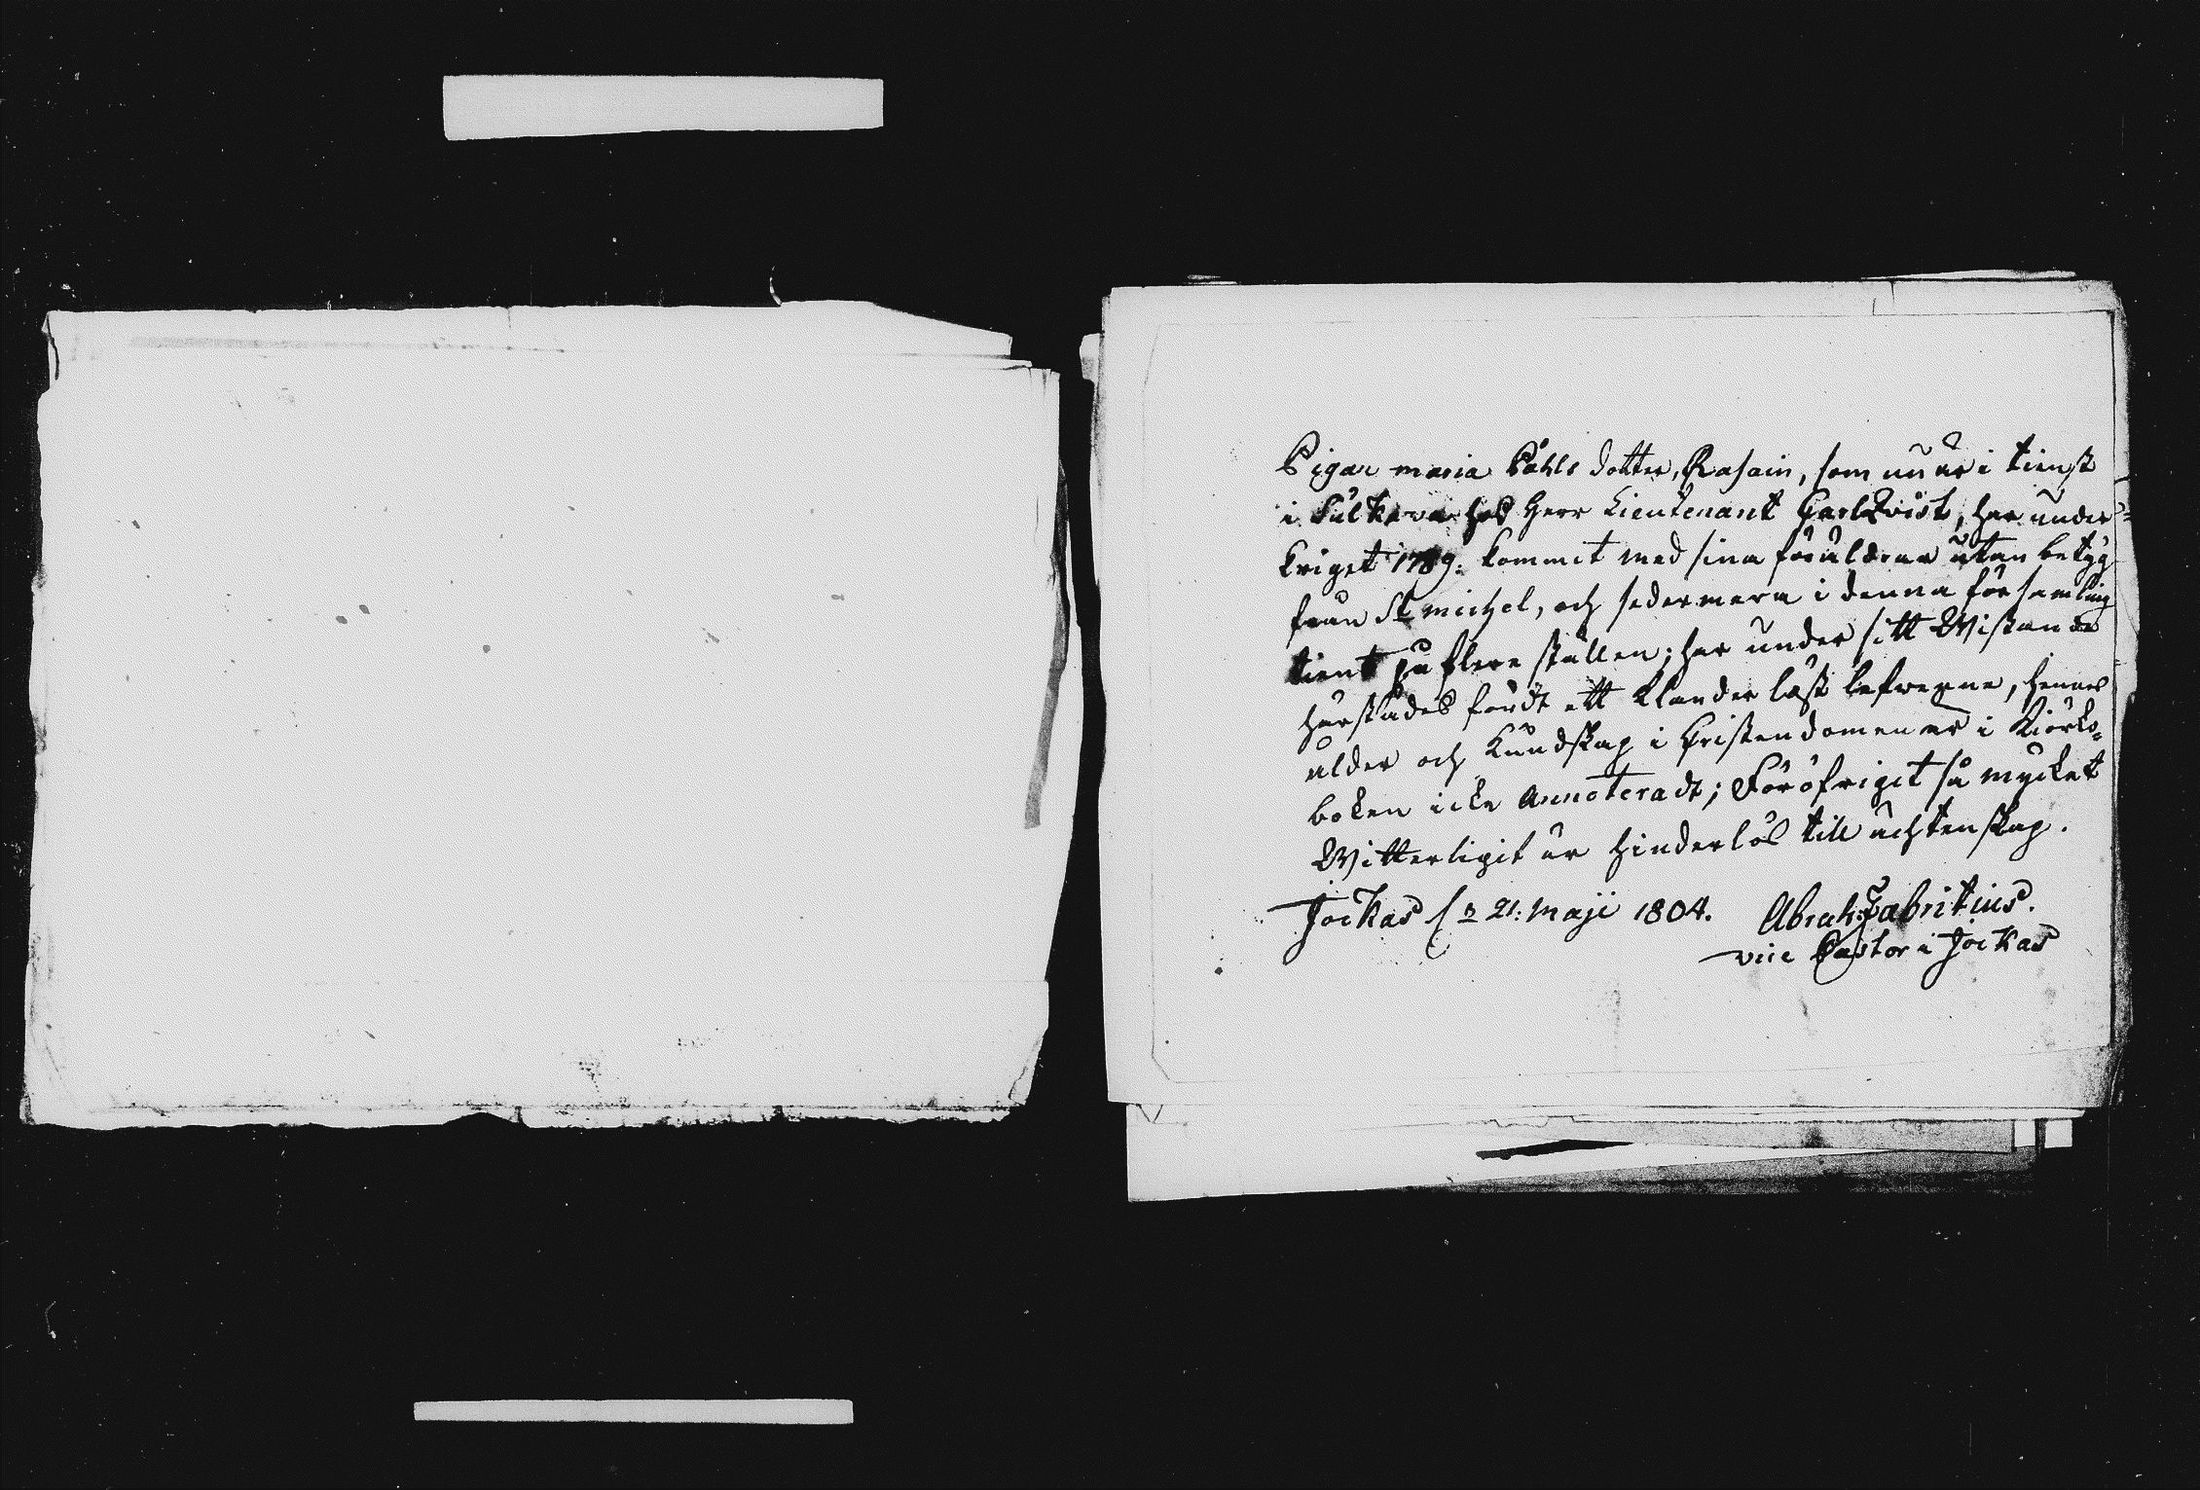 Pigan maria Påhls dotter, Rasain, som nu är i tienst
i Sulkava hos Herr Lieutenant Carlqvist, har under
kriget 1789: kommit med sina föräldrar utan betyg
från St michel, och sedermera i denna församling
tient på flere ställen; har under sitt Wistande
härstädes fördt ett klander löst lefwerne, hennes
ålder och kundskap i Cristendomen är i Kiörko-
boken icke Annoteradt; Föröfrigit så mycket
Witterligit är hinderlös till ächtenskap.
Jockas d 21: Maji 1804. Abrah: Fabritius.
vice Pastor i Jockas